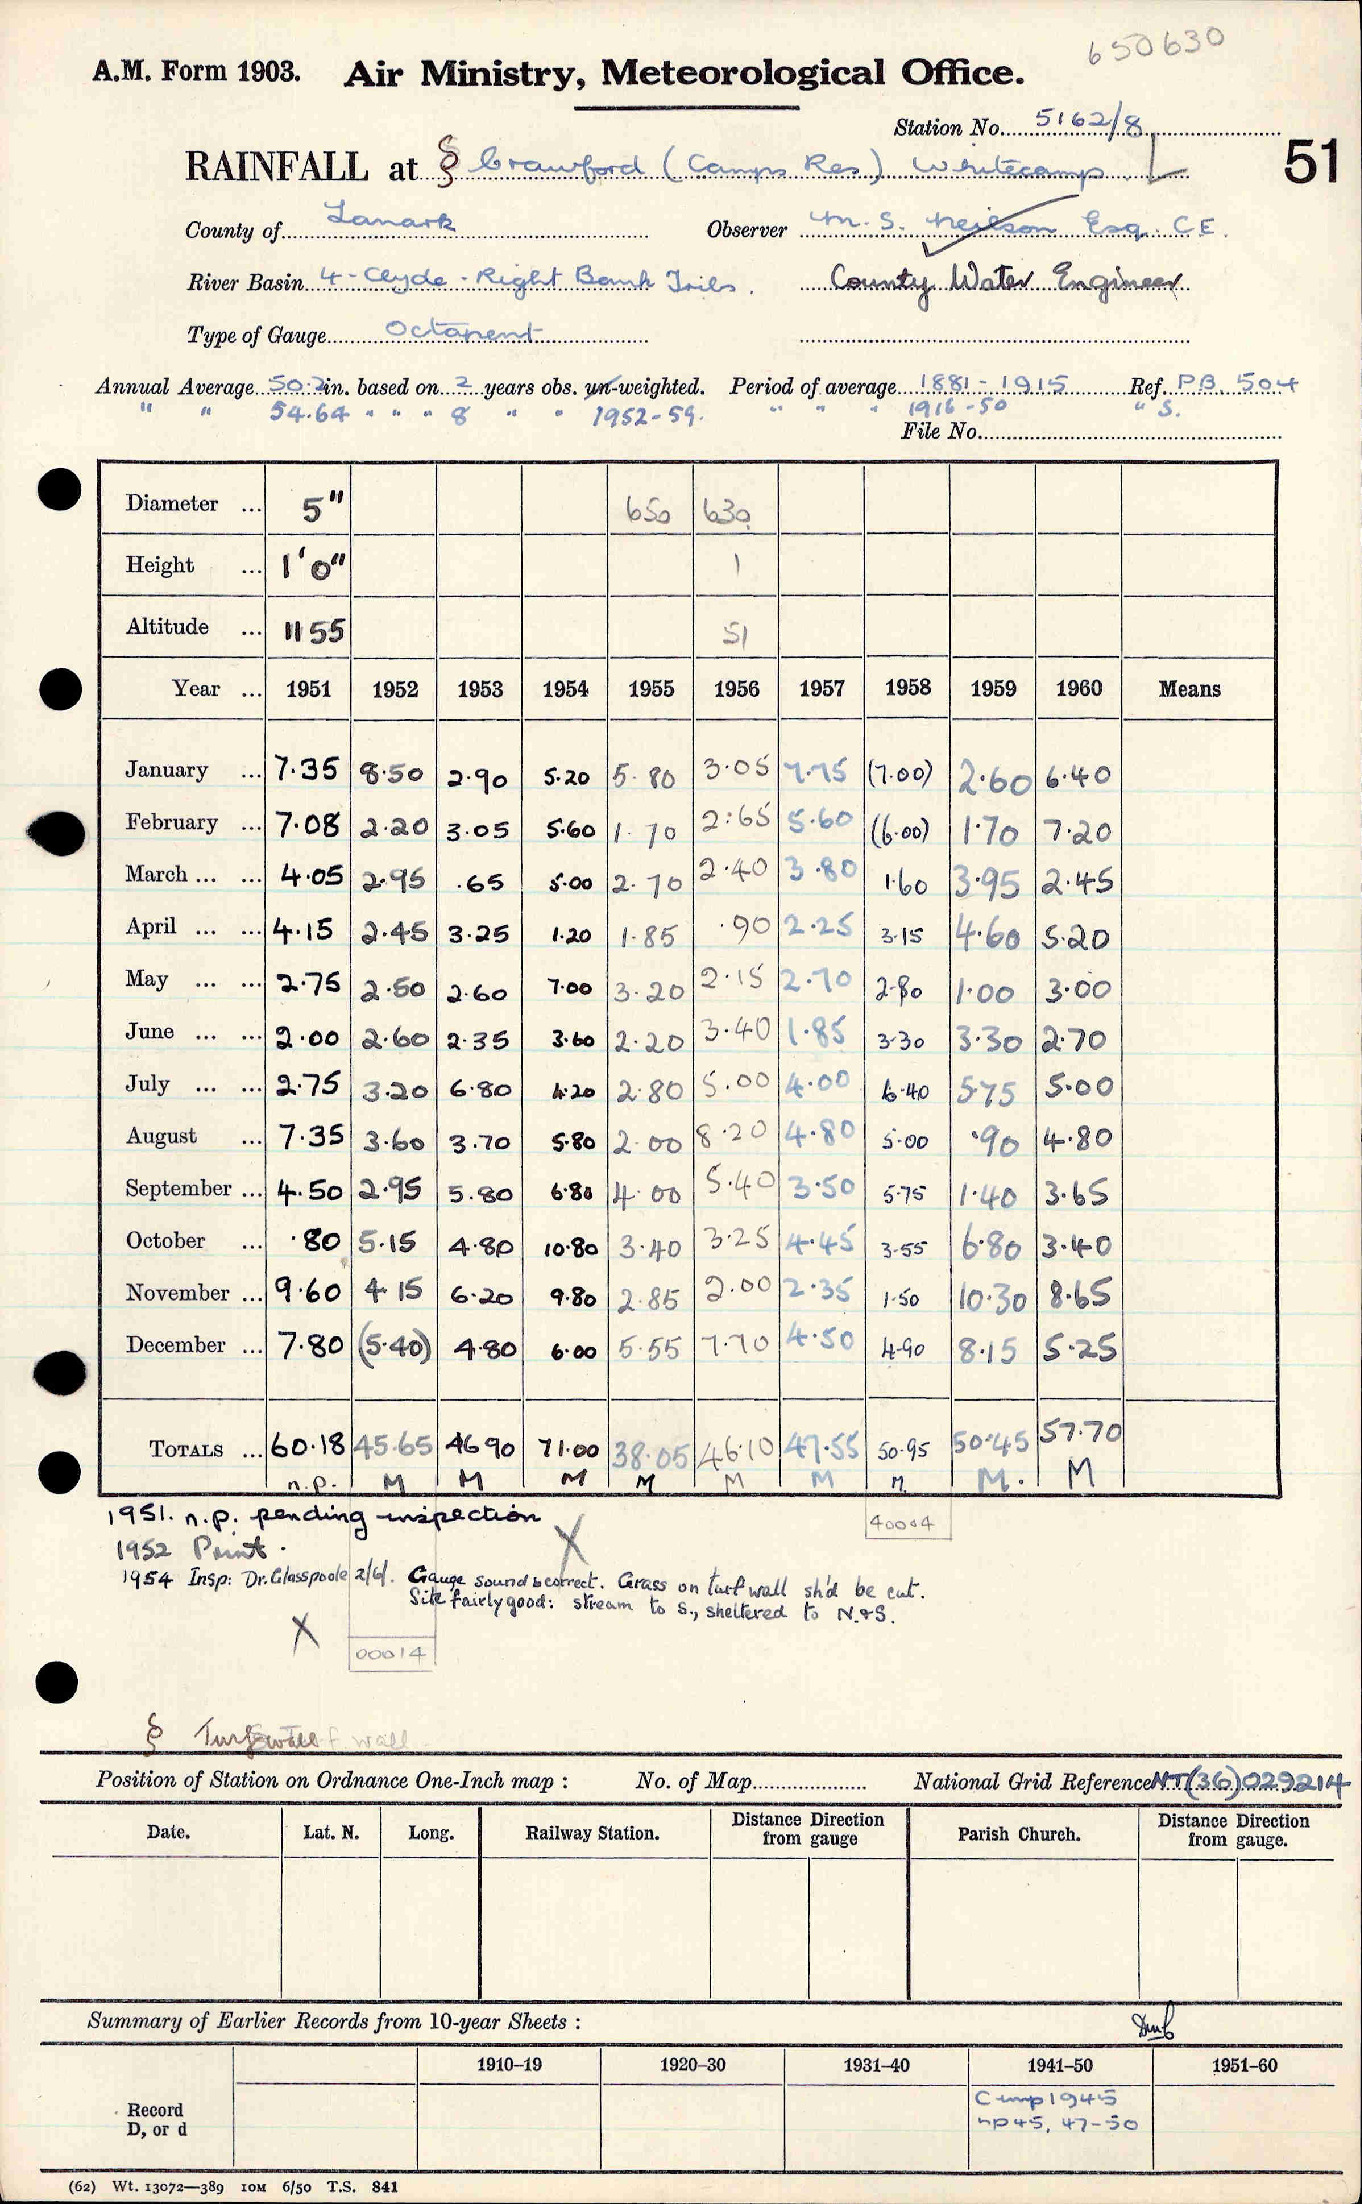 650630
A.M. Form 1903. Air Ministry, Meteorological Office.
Station No. 5162/8
RAINFALL at § Crawford (Camps Res) Whitecamp. L 51
County of Lanark Observer M. S. Neilson Esq. C E.
River Basin 4-Clyde-Right Bank Tribs. County Water Engineer
Type of Gauge Octapent
Annual Average 50.2 in. based on 2 years obs. un-weighted. Period of average 1881-1915 Ref. P.B. 504
" " 54.64 " " " 8 " " 1952-59. " " " 1916-50 " S.
File No.
Diameter ... 5" 650 630
Height ... 1'0" 1
Altitude ... 1155 51
Year ... 1951 1952 1953 1954 1955 1956 1957 1958 1959 1960 Means
January ... 7.35 8.50 2.90 5.20 5.80 3.05 7.75 (7.00) 2.60 6.40
February ... 7.08 2.20 3.05 5.60 1.70 2.65 5.60 (6.00) 1.70 7.20
March ... ... 4.05 2.95 .65 5.00 2.70 2.40 3.80 1.60 3.95 2.45
April ... ... 4.15 2.45 3.25 1.20 1.85 .90 2.25 3.15 4.60 5.20
May ... ... 2.75 2.50 2.60 7.00 3.20 2.15 2.70 2.80 1.00 3.00
June ... ... 2.00 2.60 2.35 3.60 2.20 3.40 1.85 3.30 3.30 2.70
July ... ... 2.75 3.20 6.80 4.20 2.80 5.00 4.00 6.40 5.75 5.00
August ... 7.35 3.60 3.70 5.80 2.00 8.20 4.80 5.00 .90 4.80
September ... 4.50 2.95 5.80 6.80 4.00 5.40 3.50 5.75 1.40 3.65
October ... .80 5.15 4.80 10.80 3.40 3.25 4.45 3.55 6.80 3.40
November ... 9.60 4.15 6.20 9.80 2.85 2.00 2.35 1.50 10.30 8.65
December ... 7.80 (5.40) 4.80 6.00 5.55 7.70 4.50 4.90 8.15 5.25
TOTALS ... 60.18 45.65 46.90 71.00 38.05 46.10 47.55 50.95 50.45 57.70
n.p. M M M M M M M. M. M
1951. n.p. pending inspection
40004
1952 Print.
X
1954 Insp: Dr. Glasspoole 2/6/. Gauge sound & correct. Grass on turf wall sh'd be cut.
Site fairly good: stream to S., sheltered to N.&S.
X
00014
§ Turf wall
Position of Station on Ordnance One-Inch map : No. of Map National Grid Reference NT(36)029214
Date. Lat. N. Long. Railway Station. Distance Direction from gauge Parish Church. Distance Direction from gauge.
Summary of Earlier Records from 10-year Sheets :
1910–19 1920–30 1931–40 1941–50 1951–60
Record
D, or d
Cmp 1945
np 45, 47-50
(62) Wt. 13072—389 10M 6/50 T.S. 841